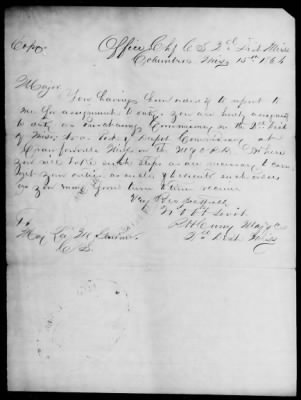 Copy
Office Chf C.S. 2nd Dist Miss
Columbus Miss 15th 1864
Major
You having been ordered to report to
me for assignment to duty, you are hereby assigned
to duty as Purchasing Commissary in the 2nd Dist
of Miss Post Commissary at
Crawfordville Miss on the M & O R R. Where
you will take such steps as are necessary to carry
out your duties as well as such orders
as you may from time to time receive
Very Respectfully
Your Obt Servt
Major C.S.
2nd Dist Miss
To
Maj M
C.S.